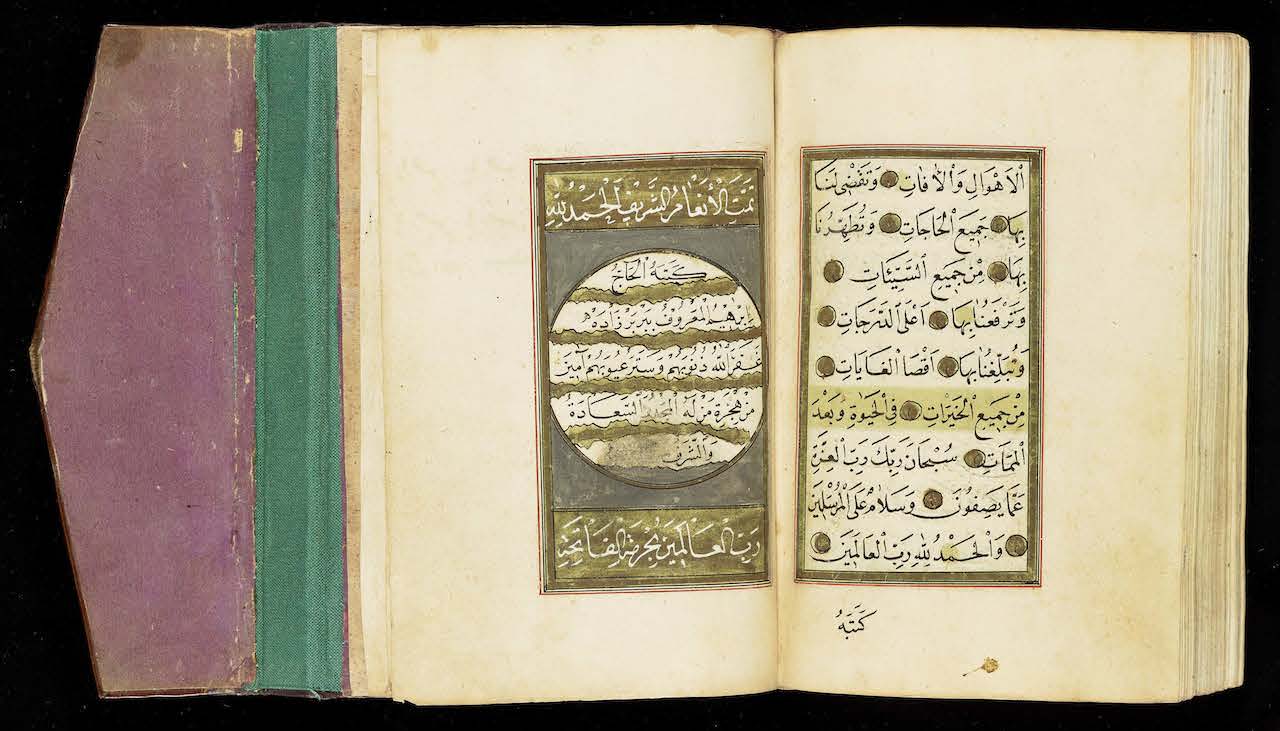 الْاَهْوَالِ وَالْاٰفَاتِ وَتَقْضٖى لَنَا
بِهَا جَمٖيعَ الْحَاجَاتِ وَتُطَهِّرُنَا
بِهَا مِنْ جَمٖيعِ السَّيِّئَاتِ
وَتَرْفَعُنَا بِهَا اَعْلَى الدَّرَجَاتِ
وَتُبَلِّغُنَا بِهَا اَقْصَا الْغَايَاتِ
مِنْ جَمٖيعِ الْخَيْرَاتِ فِى الْحَيٰوةِ وَبَعْدَ
الْمَمَاتِ سُبْحَانَ رَبِّكَ رَبِّ الْعِزَّةِ
عَمَّا يَصِفُونَ وَسَلَامٌ عَلَى الْمُرْسَلٖينَ
وَالْحَمْدُ لِلّٰهِ رَبِّ الْعَالَمٖينَ
كَتَبَهُ
تَمَّتِ الْأَنْعَامُ الشَّرِيفِ الْحَمْدُ لِلّٰهِ
كَتَبَهُ الْحَاجُّ
اِبْرٰهِيمُ الْمَعْرُوفُ بِبَرْبَرْ زَادَه
غَفَرَ اللّٰهُ ذُنُوبَهُمْ وَسَتَرَ عُيُوبَهُمْ آمِينَ
مِنْ هِجْرَةِ مَنْ لَهُ السَّعَادَةُ
وَالشَّرَفُ
رَبِّ الْعَالَمِينَ بِحُرْمَةِ الْفَاتِحَةِ